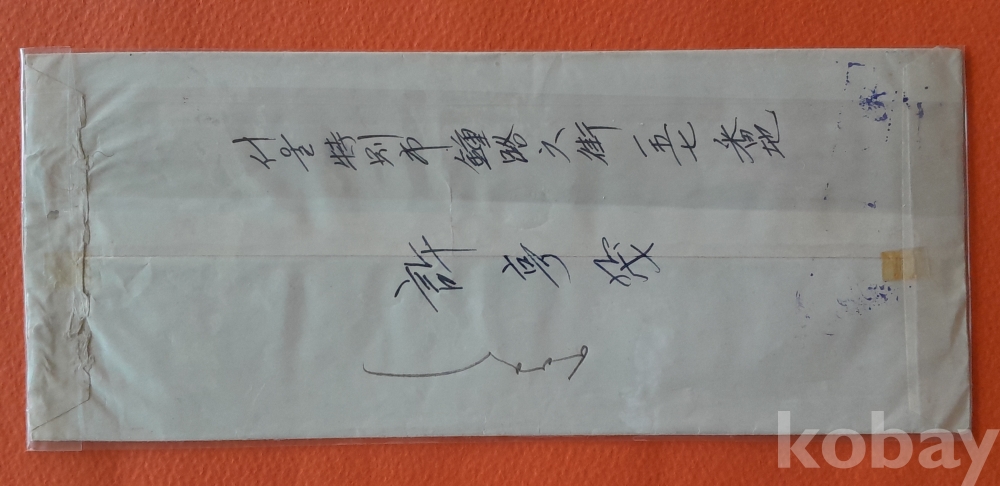 서울特別市 鍾路六街 一五七 番地
許亨
kobay